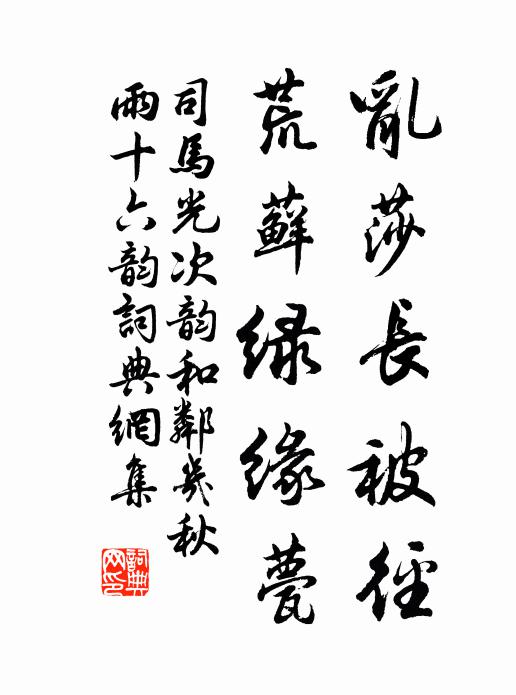 亂莎長被徑
荒蘚綠緣甍
司馬光次韵和鄰幾秋
雨十六韵詞典網集
詞典網印